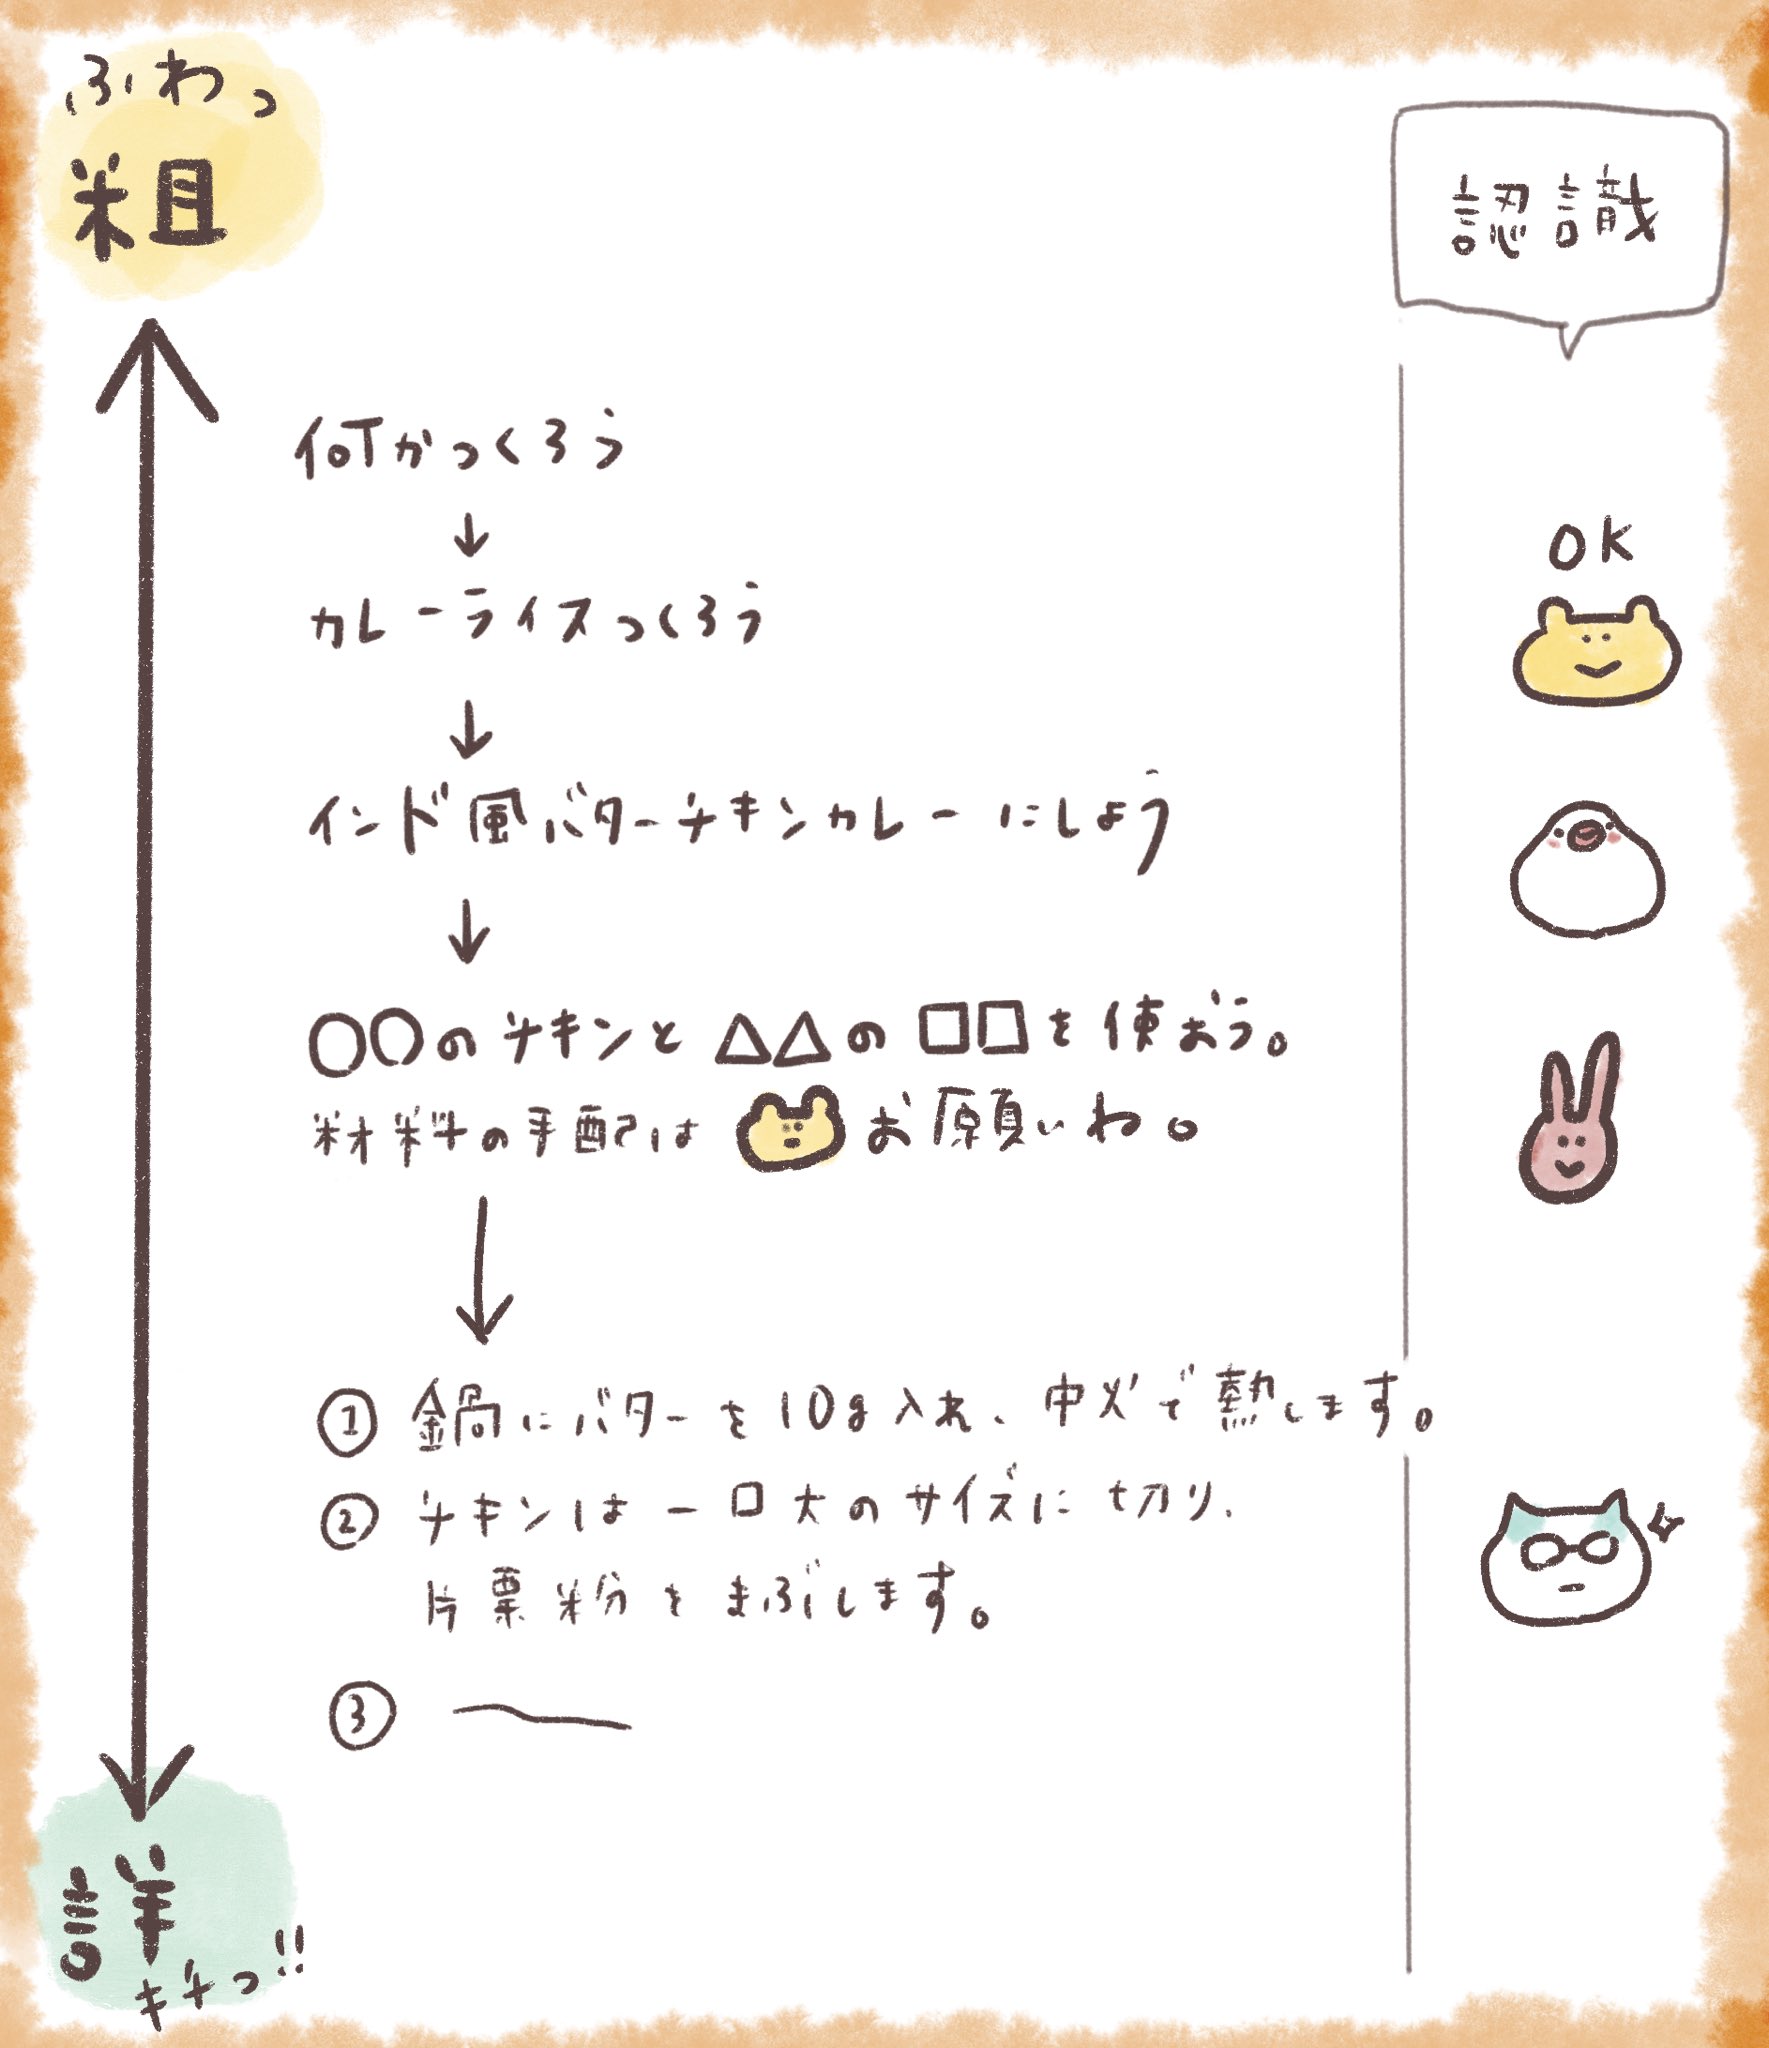 ふわっ
粗
認識
何かつくろう
↓
OK
カレーライスつくろう
↓
インド風バターチキンカレーにしよう
↓
○○のチキンと△△の□□を使おう。
材料の手配は お願いね。
↓
① 鍋にバターを10g入れ、中火で熱します。
② チキンは一口大のサイズに切り、
片栗粉をまぶします。
③
詳
キチっ!!